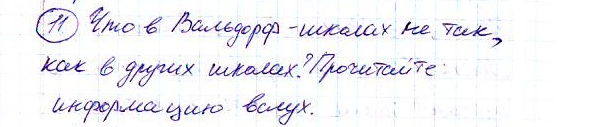 11 Что в Вальдорф-школах не так,
как в других школах? Прочитайте
информацию вслух.